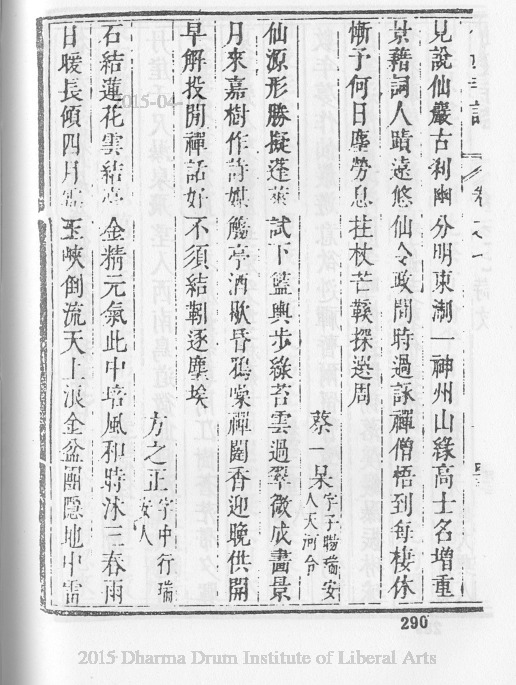 見說仙巖古刹幽分明東浙一神州山緣高士名增重
景藉詞人蹟遠悠仙令政閒時過詠禪僧悟到每棲休
慚予何日塵勞息拄杖芒鞵探選周
蔡一杲字子賜瑞安人天河令
仙源形勝擬蓬萊試下籃輿步綠苔雲過翠微成畫景
月來嘉樹作詩媒觴亭酒歇昏鴉噪禪閣香迎晚供開
早解投閒禪話好不須結靷逐塵埃
方之正字中行瑞安人
石結蓮花雲結 金精元氣此中培風和時沐三春雨
日暖長傾四月 玉峽倒流天上浪金盆團隱地中雷
290
2015-04-
2015 Dharma Drum Institute of Liberal Arts